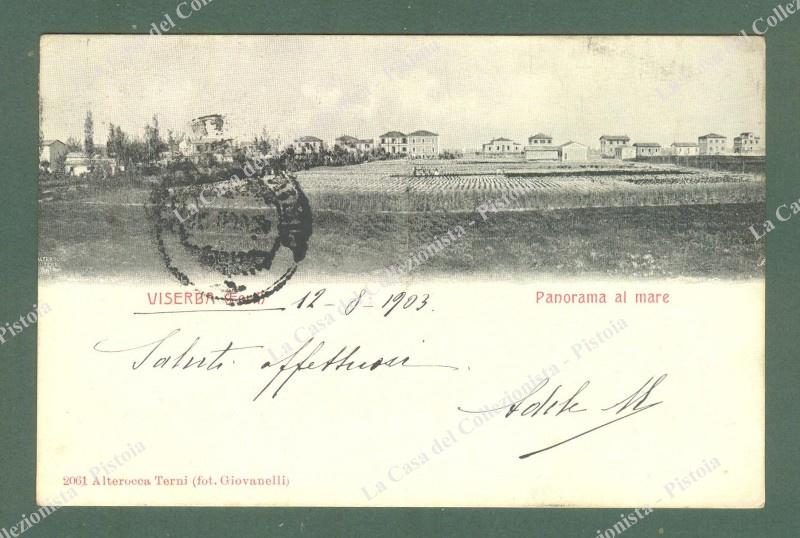 VISERBA (Forlì) 12-8-1903. Panorama al mare
Saluti affettuosi.
Adele M
2061 Alterocca Terni (fot. Giovanelli)
La Casa del Collezionista - Pistoia